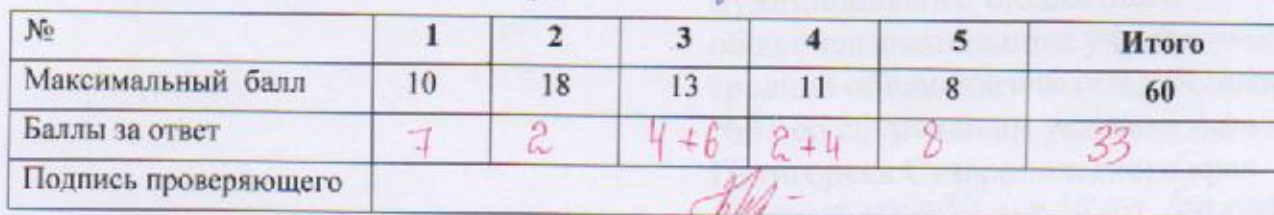 № 1 2 3 4 5 Итого
Максимальный балл 10 18 13 11 8 60
Баллы за ответ 7 2 4+6 2+4 8 33
Подпись проверяющего